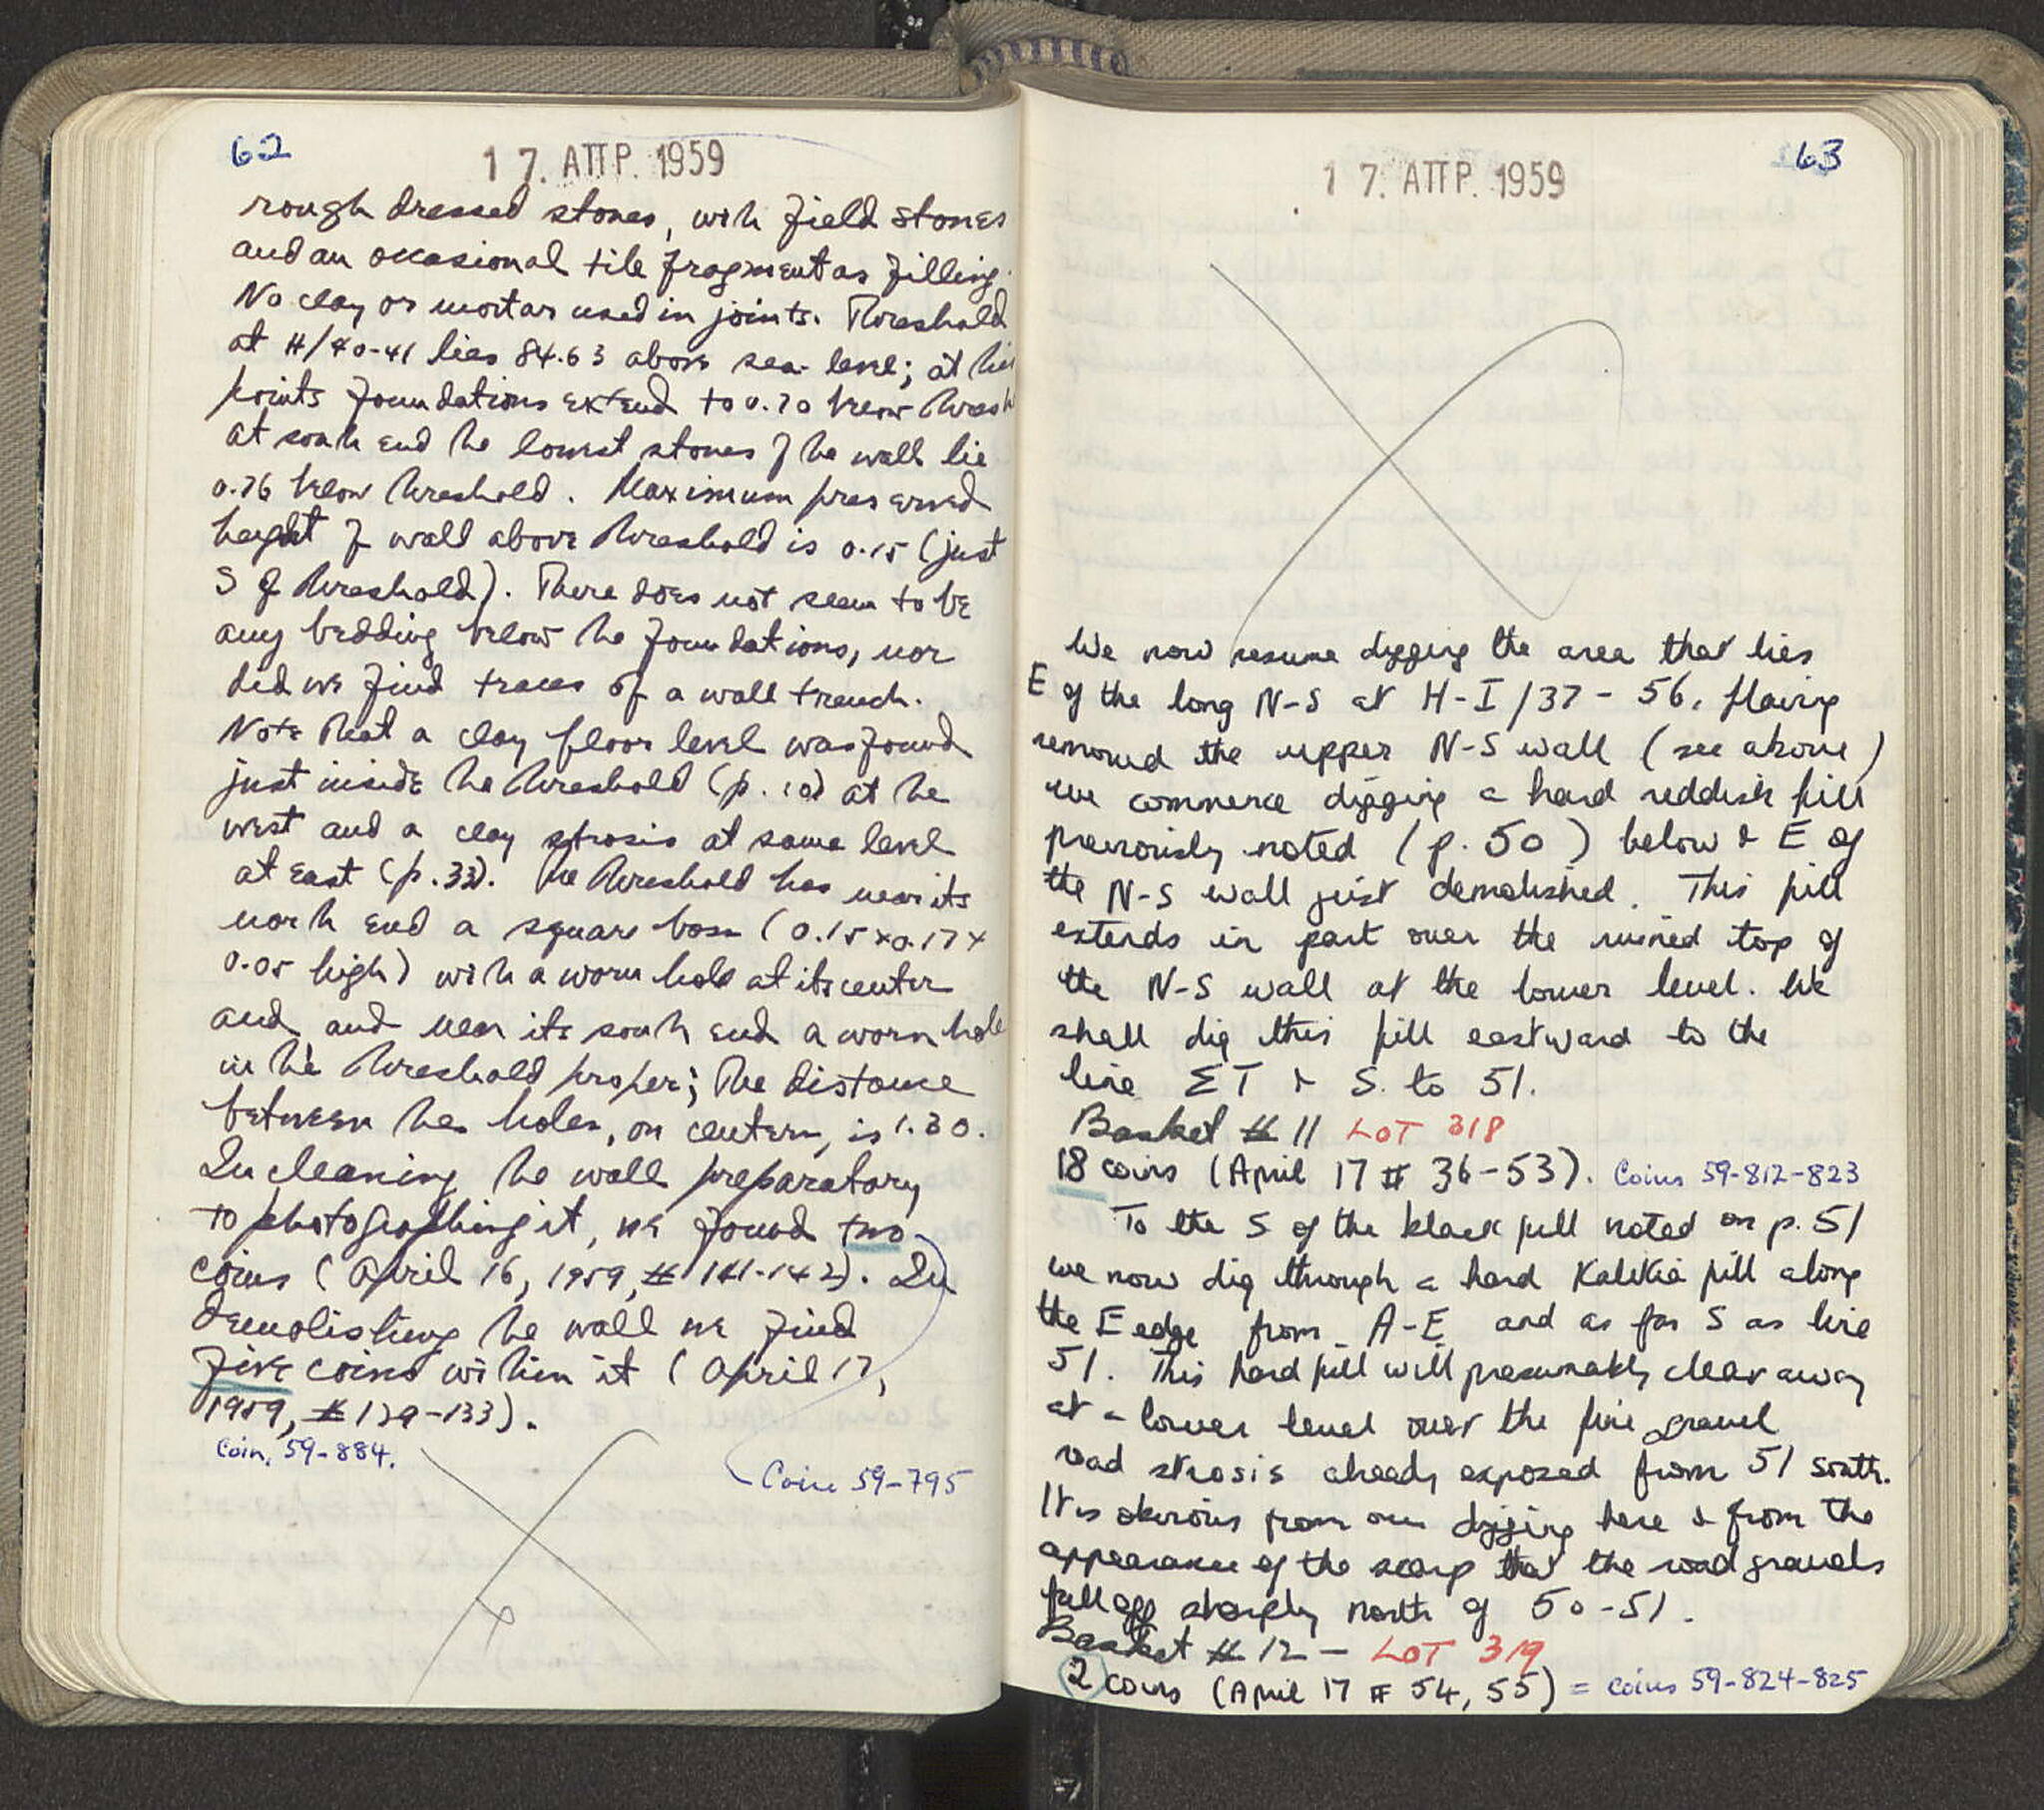 62
17. ΑΠΡ. 1959
rough dressed stones, with field stones
and an occasional tile fragment as filling.
No clay or mortar used in joints. Threshold
at H/40-41 lies 84.63 above sea level; at
points foundations extend to 0.70 below thresh
at south end the lowest stones of the wall lie
0.76 below threshold. Maximum preserved
height of wall above threshold is 0.15 (just
S of threshold). There does not seem to be
any bedding below the foundations, nor
did we find traces of a wall trench.
Note that a clay floor level was found
just inside the threshold (p. 10) at the
west and a clay strosis at same level
at east (p. 33). The threshold has near its
north end a square boss (0.15 x 0.17 x
0.05 high) with a worn hole at its center
and and near its south end a worn hole
in the threshold proper; the distance
between the holes, on centers, is 1.30.
In cleaning the wall preparatory
to photographing it, we found two
coins (April 16, 1959, # 141-142). In
demolishing the wall we find
five coins within it (April 17,
1959, # 129-133).
Coin. 59-884.
Coin 59-795
63
17. ΑΠΡ. 1959
We now resume digging the area that lies
E of the long N-S at H-I/37-56. Having
removed the upper N-S wall (see above)
we commence digging a hard reddish fill
previously noted (p. 50) below & E of
the N-S wall just demolished. This fill
extends in part over the ruined top of
the N-S wall at the lower level. We
shall dig this fill eastward to the
line ΣΤ & S. to 51.
Basket # 11 LOT 318
18 coins (April 17 # 36-53). Coins 59-812-823
To the S of the black fill noted on p. 51
we now dig through a hard Kalikia fill along
the E edge from A-E and as far S as line
51. This hard fill will presumably clear away
at a lower level over the fine gravel
road strosis already exposed from 51 south.
It is obvious from our digging here & from the
appearance of the scarp that the road gravels
fall off sharply north of 50-51.
Basket # 12 - LOT 319
2 coins (April 17 # 54, 55) = coins 59-824-825